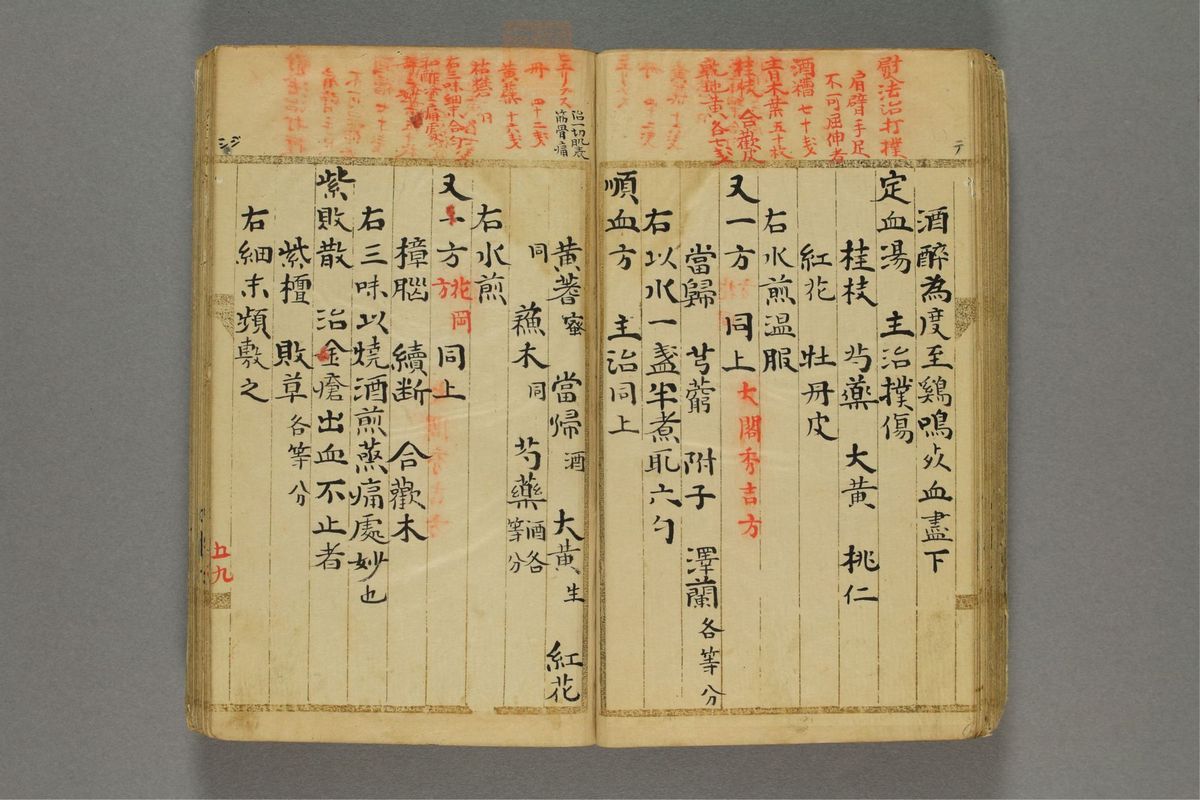 慰法治打撲
肩臂手足
不可屈伸者
酒糟 七十戔
青木葉 五十枚
桂枝 合歡皮
乾地黃 各七戔
テ
酒醉為度至鷄鳴 血盡下
定血湯 主治撲傷
桂枝 芍藥 大黃 桃仁
紅花 牡丹皮
右水煎温服
又一方 同上 大閤秀吉方
當歸 芎藭 附子 澤蘭 各等分
右以水一盞半煮取六勺
順血方 主治同上
治一切肌表
筋骨痛
ミエリクス
丹 四十二戔
黃蘗 十六戔
右三味細末合勻
和酢塗痛處
黃蓍 蜜 當歸 酒 大黃 生 紅花
同 蘓木 同 芍藥 酒各等分
右水煎
又一方 花岡方 同上
樟腦 續断 合歡木
右三味以燒酒煎蒸痛處妙也
紫敗散 治金瘡出血不止者
紫檀 敗草 各等分
右細末頻敷之
五九